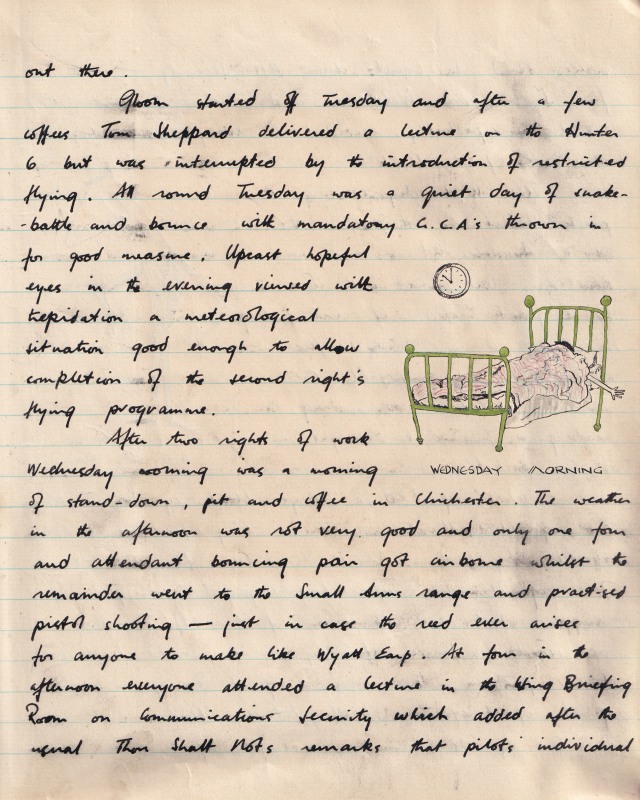 out there.
Gloom started off Tuesday and after a few
coffees Tom Sheppard delivered a lecture on the Hunter
6 but was interrupted by the introduction of restricted
flying. All round Tuesday was a quiet day of snake-
-battle and bounce with mandatory G.C.A's thrown in
for good measure. Upcast hopeful
eyes in the evening viewed with
trepidation a meteorological
situation good enough to allow
completion of the second night's
flying programme.
After two nights of work
Wednesday morning was a morning
WEDNESDAY MORNING
of stand-down, pit and coffee in Chichester. The weather
in the afternoon was not very good and only one four
and attendant bouncing pair got airborne whilst the
remainder went to the Small Arms range and practised
pistol shooting — just in case the need ever arises
for anyone to make like Wyatt Earp. At four in the
afternoon everyone attended a lecture in the Wing Briefing
Room on Communications Security which added after the
usual Thou Shalt Nots remarks that pilots' individual